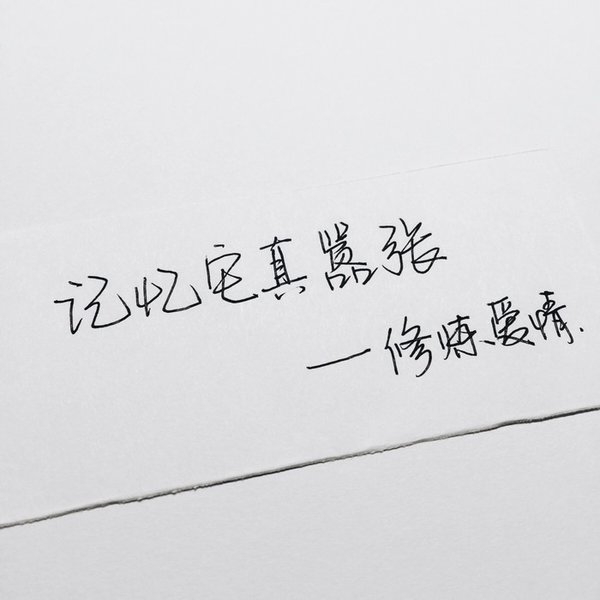 记忆它真嚣张
—修炼爱情.